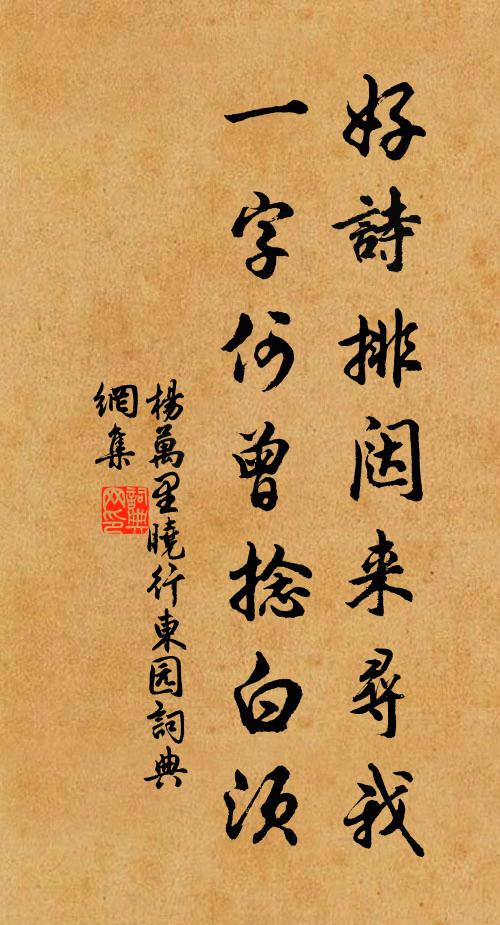 好詩排闼来尋我
一字何曾捻白须
楊萬里曉行東园詞典
網集
詞典
网印